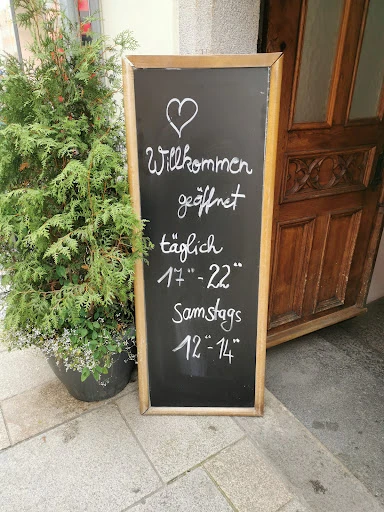 Willkommen
geöffnet
täglich
17°°-22°°
Samstags
12°°-14°°